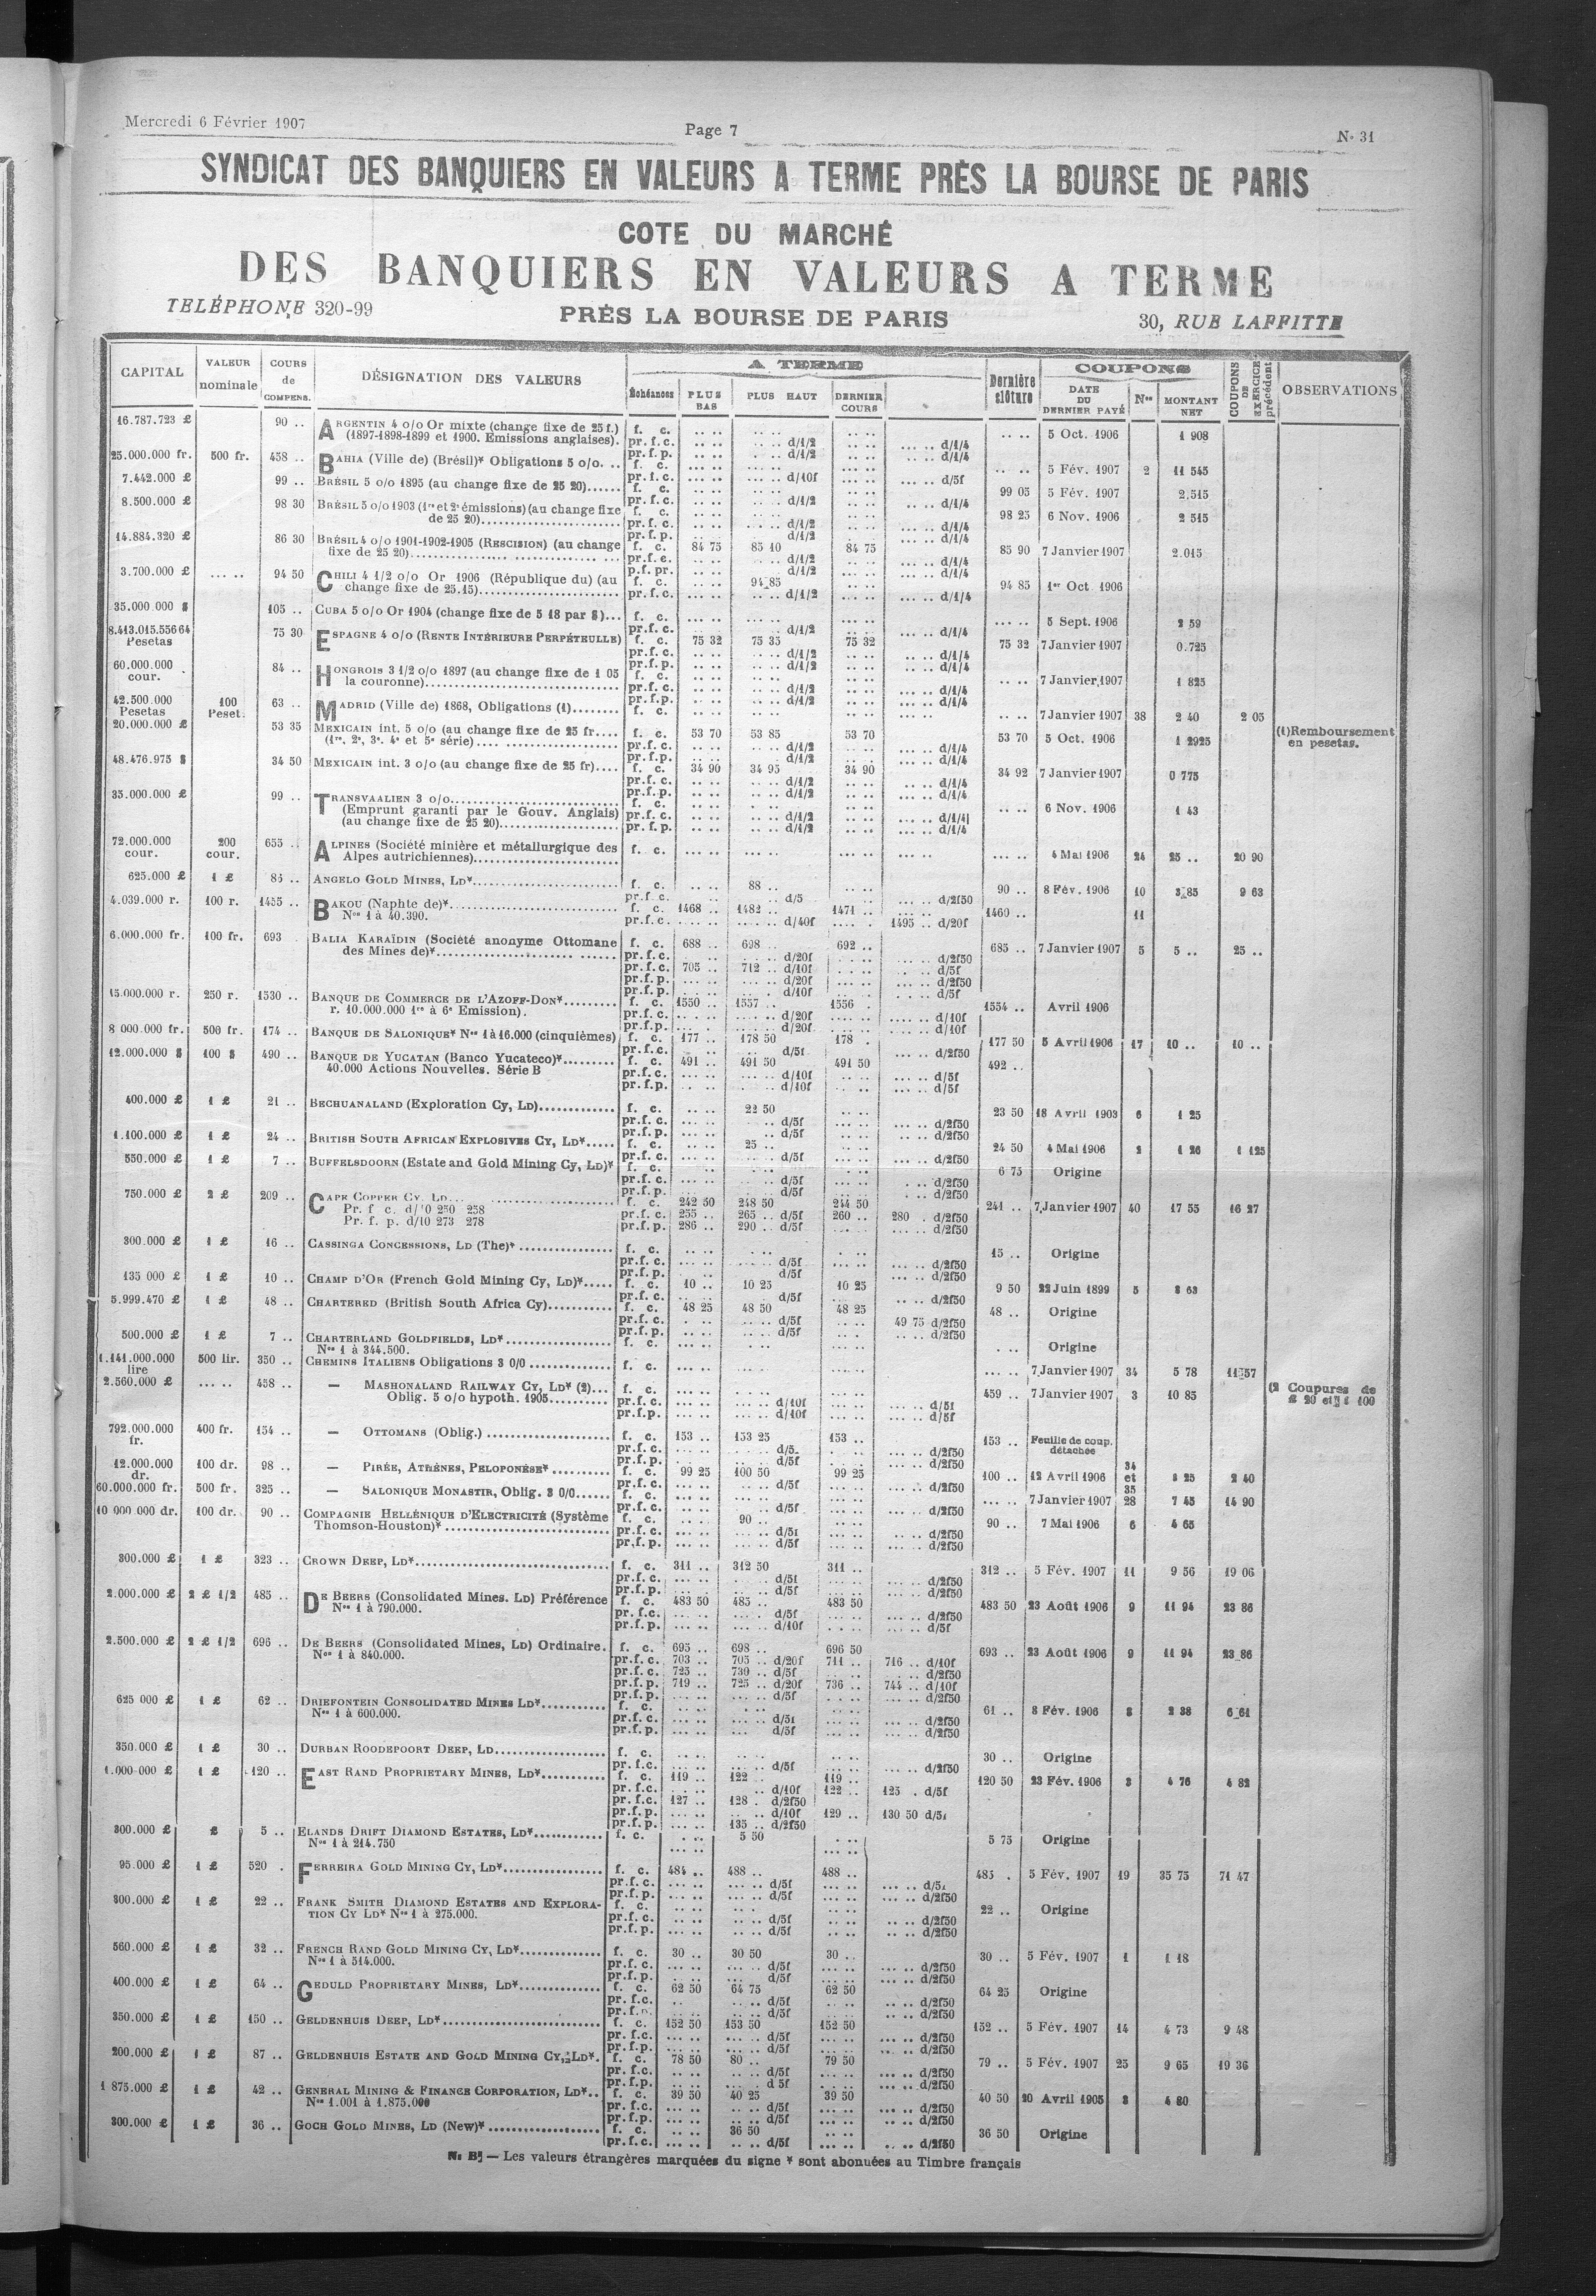 Mercredi 6 Février 1907
Page 7
N° 31
SYNDICAT DES BANQUIERS EN VALEURS A TERME PRÈS LA BOURSE DE PARIS
COTE DU MARCHÉ
DES BANQUIERS EN VALEURS A TERME
TELÉPHONE 320-99 PRÈS LA BOURSE DE PARIS 30, RUE LAFFITTE
CAPITAL VALEUR nominale COURS de COMPENS. DÉSIGNATION DES VALEURS A TERME Échéances PLUS BAS PLUS HAUT DERNIER COURS Dernière clôture COUPONS DATE DU DERNIER PAYÉ Nos MONTANT NET COUPONS DE EXERCICE précédent OBSERVATIONS
16.787.723 £ 90 .. ARGENTIN 4 o/o Or mixte (change fixe de 25 f.) f. c. .. .. .. .. .. .. .. .. 5 Oct. 1906 1 908
(1897-1898-1899 et 1900. Emissions anglaises). pr. f. c. d/1/2 d/1/4
pr. f. p. d/1/2 d/1/4
25.000.000 fr. 500 fr. 458 .. BAHIA (Ville de) (Brésil)* Obligations 5 o/o. .. f. c. 5 Fév. 1907 2 11 545
pr. f. c. d/10f d/5f
7.442.000 £ 99 .. BRÉSIL 5 o/o 1895 (au change fixe de 25 20)...... f. c. 99 05 5 Fév. 1907 2.515
pr. f. c. d/1/2 d/1/4
8.500.000 £ 98 30 BRÉSIL 5 o/o 1903 (1re et 2e émissions) (au change fixe f. c. 98 25 6 Nov. 1906 2 515
de 25 20)........ pr. f. c. d/1/2 d/1/4
pr. f. p. d/1/2 d/1/4
14.884.320 £ 86 30 BRÉSIL 4 o/o 1901-1902-1905 (RESCISION) (au change f. c. 84 75 85 10 84 75 85 90 7 Janvier 1907 2.015
fixe de 25 20)........ pr. f. c. d/1/2 d/1/4
p. f. pr. d/1/2 d/1/4
3.700.000 £ 94 50 CHILI 4 1/2 o/o Or 1906 (République du) (au f. c. 94 85 94 85 1er Oct. 1906
change fixe de 25.15)........ pr. f. c. d/1/2 d/1/4
35.000 000 $ 105 .. CUBA 5 o/o Or 1904 (change fixe de 5 18 par $)... f. c. 5 Sept. 1906 2 59
pr. f. c. d/1/2 d/1/4
8.413.015.556 64 Pesetas 75 30 ESPAGNE 4 o/o (RENTE INTÉRIEURE PERPÉTEULLE) f. c. 75 32 75 35 75 32 75 32 7 Janvier 1907 0.725
pr. f. c. d/1/2 d/1/4
pr. f. p. d/1/2 d/1/4
60.000.000 cour. 84 .. HONGROIS 3 1/2 o/o 1897 (au change fixe de 1 05 f. c. 7 Janvier 1907 1 825
la couronne)........ pr. f. c. d/1/2 d/1/4
pr. f. p. d/1/2 d/1/4
42.500.000 Pesetas 100 Peset. 63 .. MADRID (Ville de) 1868, Obligations (1)........ f. c. 7 Janvier 1907 38 2 40 2 05
20.000.000 £ 53 35 MEXICAIN int. 5 o/o (au change fixe de 25 fr.... f. c. 53 70 53 85 53 70 53 70 5 Oct. 1906 1 2925 (1) Remboursement en pesetas.
(1re, 2e, 3e, 4e et 5e série)........ pr. f. c. d/1/2 d/1/4
pr. f. p. d/1/2 d/1/4
48.476.975 $ 34 50 MEXICAIN int. 3 o/o (au change fixe de 25 fr).... f. c. 34 90 34 95 34 90 34 92 7 Janvier 1907 0 775
pr. f. c. d/1/2 d/1/4
pr. f. p. d/1/2 d/1/4
35.000.000 £ 99 .. TRANSVAALIEN 3 o/o........ f. c. 6 Nov. 1906 1 43
(Emprunt garanti par le Gouv. Anglais) pr. f. c. d/1/2 d/1/4
(au change fixe de 25 20)........ pr. f. p. d/1/2 d/1/4
72.000.000 cour. 200 cour. 655 .. ALPINES (Société minière et métallurgique des f. c. 4 Mai 1906 24 25 .. 20 90
Alpes autrichiennes)........
625.000 £ 1 £ 85 .. ANGELO GOLD MINES, LD*........ f. c. 88 .. 90 .. 8 Fév. 1906 10 3 85 9 63
pr. f. c. d/5 d/2f50
4.039.000 r. 100 r. 1455 .. BAKOU (Naphte de)*........ f. c. 1468 .. 1482 .. 1471 .. 1460 .. 11
Nos 1 à 40.390. pr. f. c. d/40f 1495 .. d/20f
6.000.000 fr. 100 fr. 693 . BALIA KARAÏDIN (Société anonyme Ottomane f. c. 688 .. 698 .. 692 .. 685 .. 7 Janvier 1907 5 5 .. 25 ..
des Mines de)*........ pr. f. c. d/20f d/2f50
pr. f. c. 705 .. 712 .. d/10f d/5f
pr. f. p. d/20f d/2f50
pr. f. p. d/10f d/5f
15.000.000 r. 250 r. 1530 .. BANQUE DE COMMERCE DE L'AZOFF-DON*........ f. c. 1550 .. 1557 .. 1556 . 1554 .. Avril 1906
r. 10.000.000 1re à 6e Emission). pr. f. c. d/20f d/10f
pr. f. p. d/20f d/10f
8 000.000 fr. 500 fr. 174 .. BANQUE DE SALONIQUE* Nos 1 à 16.000 (cinquièmes) f. c. 177 .. 178 50 178 . 177 50 5 Avril 1906 17 10 .. 10 ..
pr. f. c. d/5f d/2f50
12.000.000 $ 100 $ 490 .. BANQUE DE YUCATAN (Banco Yucateco)*........ f. c. 491 .. 491 50 491 50 492 ..
40.000 Actions Nouvelles. Série B pr. f. c. d/10f d/5f
pr. f. p. d/10f d/5f
400.000 £ 1 £ 21 .. BECHUANALAND (Exploration Cy, LD)........ f. c. 22 50 23 50 18 Avril 1903 6 1 25
pr. f. c. d/5f d/2f50
pr. f. p. d/5f d/2f50
1.100.000 £ 1 £ 24 .. BRITISH SOUTH AFRICAN EXPLOSIVES CY, LD*..... f. c. 25 .. 24 50 4 Mai 1906 2 1 26 1 125
pr. f. c. d/5f d/2f50
550.000 £ 1 £ 7 .. BUFFELSDOORN (Estate and Gold Mining Cy, LD)* f. c. 6 75 Origine
pr. f. c. d/5f d/2f50
pr. f. p. d/5f d/2f50
750.000 £ 2 £ 209 .. CAPE COPPER CY. LD... f. c. 242 50 248 50 244 50 241 .. 7 Janvier 1907 40 17 55 16 27
Pr. f c. d/10 250 258 pr. f. c. 255 .. 265 .. d/5f 260 .. 280 . d/2f50
Pr. f. p. d/10 273 278 pr. f. p. 286 .. 290 .. d/5f d/2f50
300.000 £ 1 £ 16 .. CASSINGA CONCESSIONS, LD (The)*........ f. c. 15 .. Origine
pr. f. c. d/5f d/2f50
pr. f. p. d/5f d/2f50
135 000 £ 1 £ 10 .. CHAMP D'OR (French Gold Mining Cy, LD)*..... f. c. 10 .. 10 25 10 25 9 50 22 Juin 1899 5 3 63
pr. f. c. d/5f d/2f50
5.999.470 £ 1 £ 48 .. CHARTERED (British South Africa Cy)........ f. c. 48 25 48 50 48 25 48 .. Origine
pr. f. c. d/5f 49 75 d/2f50
pr. f. p. d/5f d/2f50
500.000 £ 1 £ 7 .. CHARTERLAND GOLDFIELDS, LD*........ f. c. Origine
Nos 1 à 344.500.
1.141.000.000 lire 500 lir. 350 .. CHEMINS ITALIENS Obligations 3 0/0........ f. c. 7 Janvier 1907 34 5 78 11 57
2.560.000 £ 458 .. — MASHONALAND RAILWAY CY, LD* (2)... f. c. 459 .. 7 Janvier 1907 3 10 85 (2 Coupures de
Oblig. 5 o/o hypoth. 1905........ pr. f. c. d/10f d/5f £ 20 et £ 100
pr. f. p. d/10f d/5f
792.000.000 fr. 400 fr. 154 .. — OTTOMANS (Oblig.)........ f. c. 153 .. 153 25 153 .. 153 .. Feuille de coup. détachée
pr. f. c. d/5. d/2f50
pr. f. p. d/5f d/2f50
12.000.000 dr. 100 dr. 98 .. — PIRÉE, ATHÈNES, PELOPONÈSE*........ f. c. 99 25 100 50 99 25 100 .. 12 Avril 1906 34 et 35 2 40
pr. f. c. d/5f d/2f50
60.000.000 fr. 500 fr. 325 .. — SALONIQUE MONASTIR, Oblig. 3 0/0...... f. c. 7 Janvier 1907 28 7 45 14 90
pr. f. c. d/5f d/2f50
10 000 000 dr. 100 dr. 90 .. COMPAGNIE HELLÉNIQUE D'ELECTRICITÉ (Système f. c. 90 .. 90 .. 7 Mai 1906 6 4 65
Thomson-Houston)*........ pr. f. c. d/5f d/2f50
pr. f. p. d/5f d/2f50
300.000 £ 1 £ 323 .. CROWN DEEP, LD*........ f. c. 311 .. 312 50 311 .. 312 .. 5 Fév. 1907 11 9 56 19 06
pr. f. c. d/5f d/2f50
pr. f. p. d/5f d/2f50
2.000.000 £ 2 £ 1/2 485 .. DE BEERS (Consolidated Mines. LD) Préférence f. c. 483 50 485 .. 483 50 483 50 23 Août 1906 9 11 94 23 86
Nos 1 à 790.000. pr. f. c. d/5f d/2f50
pr. f. p. d/10f d/5f
2.500.000 £ 2 £ 1/2 696 .. DE BEERS (Consolidated Mines, LD) Ordinaire. f. c. 695 .. 698 .. 696 50 693 .. 23 Août 1906 9 11 94 23 86
Nos 1 à 840.000. pr. f. c. 703 .. 705 .. d/20f 711 .. 716 .. d/10f
pr. f. c. 725 .. 730 .. d/5f d/2f50
pr. f. p. 719 .. 725 .. d/20f 736 .. 744 .. d/10f
pr. f. p. d/5f d/2f50
625 000 £ 1 £ 62 .. DRIEFONTEIN CONSOLIDATED MINES LD*........ f. c. 61 .. 8 Fév. 1906 3 2 38 6 61
Nos 1 à 600.000. pr. f. c. d/5f d/2f50
pr. f. p. d/5f d/2f50
350.000 £ 1 £ 30 .. DURBAN ROODEPOORT DEEP, LD........ f. c. 30 .. Origine
pr. f. c. d/5f d/2f50
1.000 000 £ 1 £ 120 .. EAST RAND PROPRIETARY MINES, LD*........ f. c. 119 .. 122 .. 119 .. 120 50 23 Fév. 1906 3 4 76 4 82
pr. f. c. d/10f 122 .. 125 . d/5f
pr. f. c. 127 .. 128 . d/2f50
pr. f. p. d/10f 129 .. 130 50 d/5f
pr. f. p. 135 .. d/2f50
300.000 £ £ 5 .. ELANDS DRIFT DIAMOND ESTATES, LD*........ f. c. 5 50 5 75 Origine
Nos 1 à 214.750
95.000 £ 1 £ 520 . FERREIRA GOLD MINING CY, LD*........ f. c. 484 .. 488 .. 488 .. 485 . 5 Fév. 1907 19 35 75 71 47
pr. f. c. d/5f d/5f
pr. f. p. d/5f d/2f50
300.000 £ 1 £ 22 .. FRANK SMITH DIAMOND ESTATES AND EXPLORA- f. c. 22 .. Origine
TION CY LD* Nos 1 à 275.000. pr. f. c. d/5f d/2f50
pr. f. p. d/5f d/2f50
560.000 £ 1 £ 32 .. FRENCH RAND GOLD MINING CY, LD*........ f. c. 30 .. 30 50 30 .. 30 .. 5 Fév. 1907 1 1 18
Nos 1 à 514.000. pr. f. c. d/5f d/2f50
pr. f. p. d/5f d/2f50
400.000 £ 1 £ 64 .. GEDULD PROPRIETARY MINES, LD*........ f. c. 62 50 64 75 62 50 64 25 Origine
pr. f. c. d/5f d/2f50
pr. f. p. d/5f d/2f50
350.000 £ 1 £ 150 .. GELDENHUIS DEEP, LD*........ f. c. 152 50 153 50 152 50 152 .. 5 Fév. 1907 14 4 73 9 48
pr. f. c. d/5f d/2f50
pr. f. p. d/5f d/2f50
200.000 £ 1 £ 87 .. GELDENHUIS ESTATE AND GOLD MINING CY, LD*. f. c. 78 50 80 .. 79 50 79 .. 5 Fév. 1907 25 9 65 19 36
pr. f. c. d/5f d/2f50
pr. f. p. d 5f d/2f50
1 875.000 £ 1 £ 42 .. GENERAL MINING & FINANCE CORPORATION, LD*.. f. c. 39 50 40 25 39 50 40 50 20 Avril 1905 3 4 80
Nos 1.001 à 1.875.000 pr. f. c. d/5f d/2f50
pr. f. p. d/5f d/2f50
300.000 £ 1 £ 36 .. GOCH GOLD MINES, LD (New)*........ f. c. 36 50 36 50 Origine
pr. f. c. d/5f d/2f50
N. B. — Les valeurs étrangères marquées du signe * sont abonuées au Timbre français